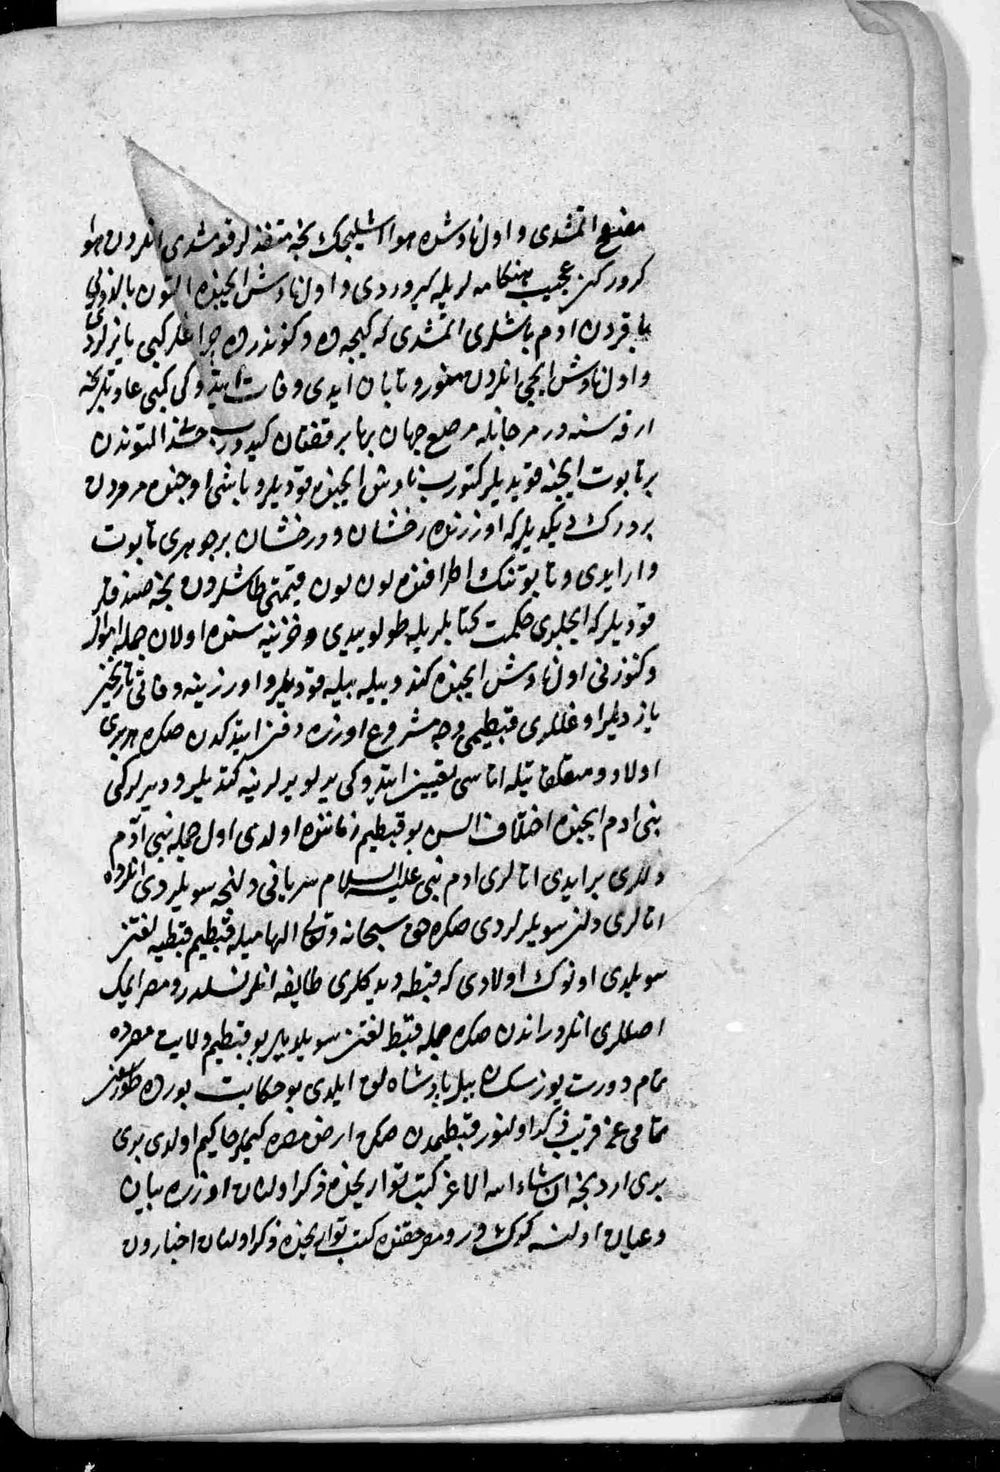 مصنع اتمشدی و اول ناوش هوا اشلیجك نجه منفذلر قومشدی انلردن هوا
كرور كن عجیب هنكامه لریله كیروردی و اول ناوش ایچنده التون یالدزلی
باقردن ادم باشلری اتمشدی كه كیجه ده و كوندزده چراغلر كبی یانرلردی
و اول ناوش ایچی انلردن منور و تابان ایدی وفات ایتدوكی كبی عادتلرنجه
ارقه سنه در مرجانله مرصع جهان بها بر قفتان كیدورب خلد التوندن
بر تابوت ایچنه قویدیلر كتورب ناوش ایچنده قودیلر و باشی اوجنده مرمردن
بر درك دیكدیلر كه اوزرنده رخشان و درخشان بر جوهری تابوت
وار ایدی و تابوتنك اطرافنده لون لون قیمتی طاشلردن نجه صندقلر
قودیلر كه ایچلری حكمت كتابلریله طولو ییدی و خزینه سنده اولان جمله اموال
و كنوزنی اول ناوش ایچنده كندوییله بیله قودیلر و اوزرینه وفاتی تاریخن
یازدیلر اوغللری قبطیمی وجه مشروع اوزره دفن ایتدكدن صكره هر بری
اولاد و متعلقاتیله اتاسی تعیین ایتدوكی یرلو یرلرینه كتدیلر و دیرلر كی
بنی ادم ایچنده اختلاف السن بو قبطیم زماننده اولدی اول جمله بنی آدم
دللری بر ایدی اتالری ادم نبی علیه السلام سریانی دلنجه سویلردی انلرده
اتالری دلن سویلرلردی صكره حق سبحانه وتعالی الهامیله قبطیم قبطیه لغتن
سویلدی اونوك اولادی كه قبطه دیدكلری طایفه انلر نسلدر و مصر ایلنك
اصللری انلردر اندن صكره جمله قبط لغتن سویلدیلر بو قبطیم ولایت مصرده
تمام دورت یوز سكسان ییل پادشاه لق ایلدی بو حكایت بورده طورسون
تمامی عن قریب ذكر اولنور قبطیمدن صكره ارض مصره كیملر حاكیم اولدی بری
بری اردنجه ان شاء الله الاعز كتب تواریخده ذكر اولنان اوزره بیان
و عیان اولنسه كركدر و مصر حقنده كتب تواریخده ذكر اولنان اخباردن